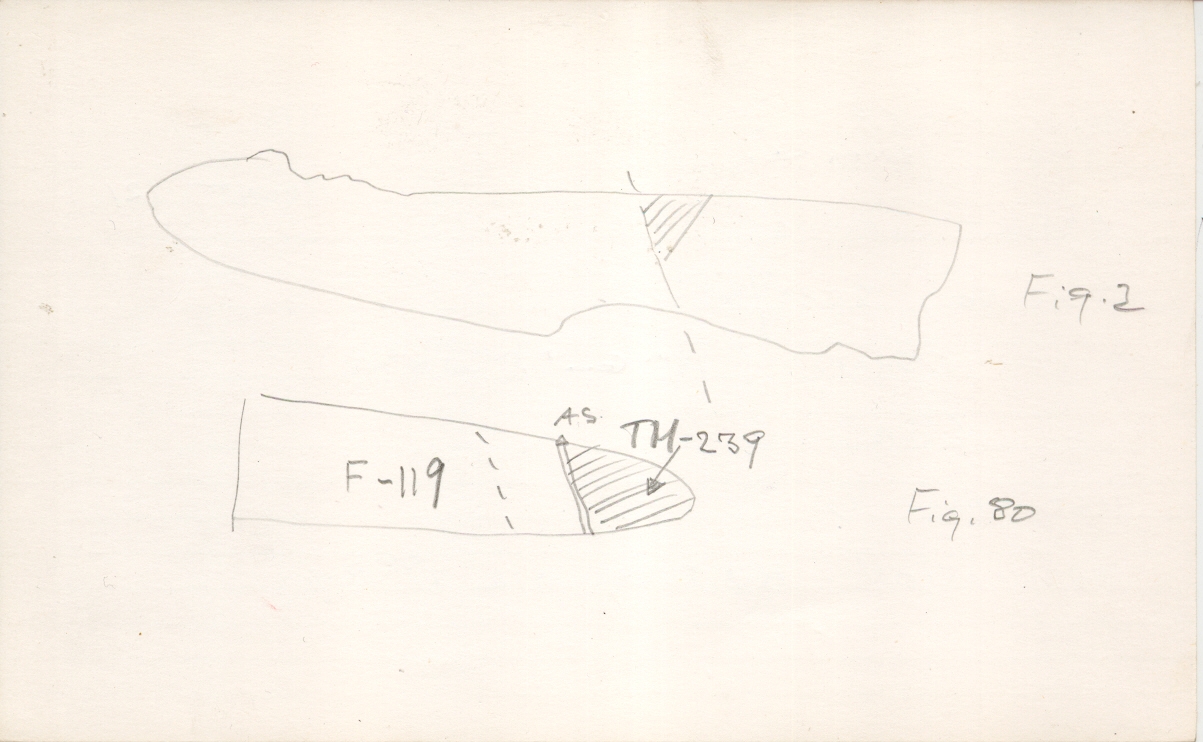 Fig. 2
A.S.
TH-239
F-119
Fig. 80